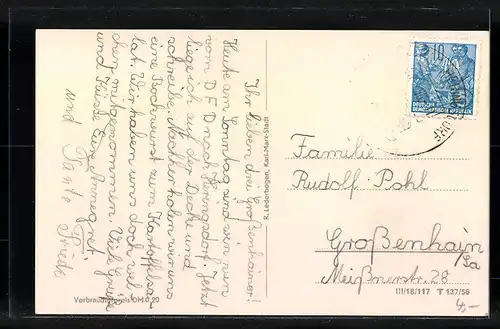 Ihr lieben drei Großenhainer!
Heute am Sonntag sind wir nun
vom D F D nach Heringsdorf. Jetzt
liege ich auf der Decke und
schreibe. Nachher holen wir uns
eine Bockwurst zum Kartoffelsa-
lat. Wir haben uns doch wel-
chen mitgenommen. Viel Grüße
und Küsse Eure Irmgard.
und Tante Frieda
R. Lederbogen, Karl-Marx-Stadt
Verbraucherpreis DM 0,20
10
DEUTSCHE
DEMOKRATISCHE REPUBLIK
Familie
Rudolf Pohl
Großenhain/
Sa
Meißnerstr. 28
III/18/117 T 137/56